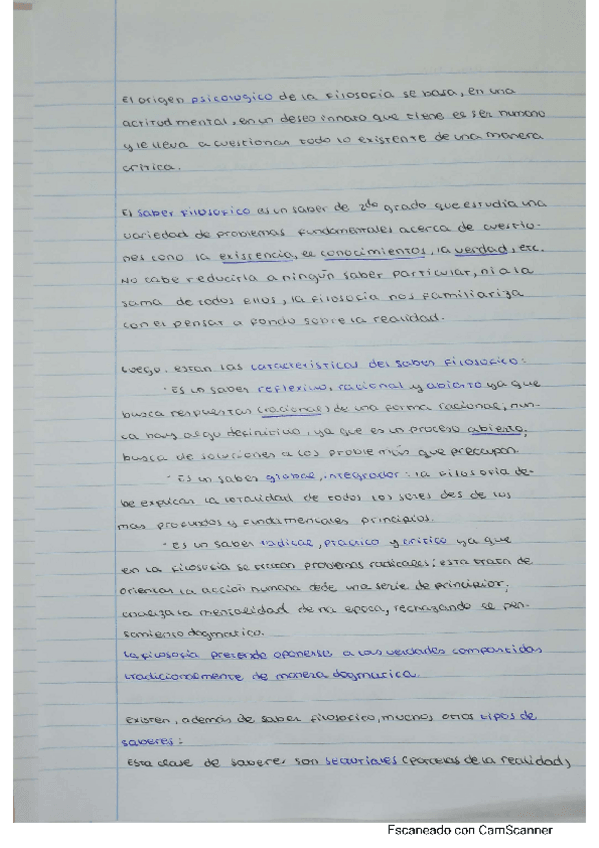 El origen psicologico de la filosofia se basa, en una
actitud mental, en un deseo innato que tiene el ser humano
y le lleva a cuestionar todo lo existente de una manera
critica.
El saber filosofico es un saber de 2do grado que estudia una
variedad de problemas fundamentales acerca de cuestio-
nes como la existencia, el conocimientos, la verdad, etc.
No cabe reducirla a ningún saber particular, ni a la
suma de todos ellos, la filosofia nos familiariza
con el pensar a fondo sobre la realidad.
Luego, estan las caracteristicas del saber filosofico:
· Es un saber reflexivo, racional y abierto ya que
busca respuestas (racional) de una forma racional; nun-
ca hay algo definitivo, ya que es un proceso abierto;
busca de soluciones a los problemas que preocupan.
· Es un saber global, integrador: la filosofia de-
be explicar la totalidad de todos los seres des de los
mas profundos y fundamentales principios.
· Es un saber radical, practico y critico ya que
en la filosofia se tratan problemas radicales; esta trata de
orientar la acción humana dede una serie de principios;
analiza la mentalidad de na epoca, rechazando el pen-
samiento dogmatico.
La filosofia pretende oponerse a las verdades compartidas
tradicionalmente de manera dogmatica.
Existen, además de saber filosofico, muchos otros tipos de
saberes:
Esta clase de saberes son sectoriales (parcelas de la realidad,
Escaneado con CamScanner